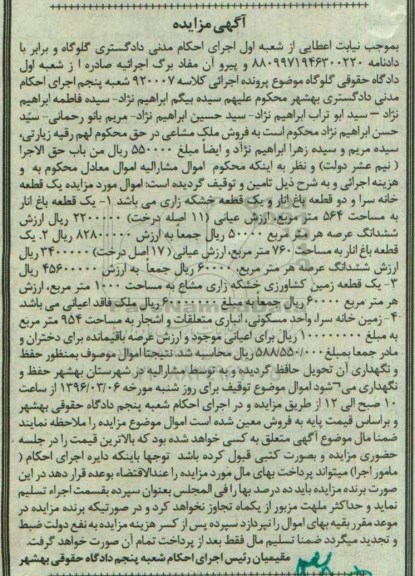 آگهی مزایده
بموجب نیابت اعطایی از شعبه اول اجرای احکام مدنی دادگستری گلوگاه و برابر با
دادنامه ۸۸۰۹۹۷۱۹۴۶۳۰۰۲۲۰ و پیرو آن مفاد برگ اجرائیه صادره ا ز شعبه اول
دادگاه حقوقی گلوگاه موضوع پرونده اجرائی کلاسه ۹۲۰۰۰۷ شعبه پنجم اجرای احکام
مدنی دادگستری بهشهر محکوم علیهم سیده بیگم ابراهیم نژاد- سیده فاطمه ابراهیم
نژاد – سید ابو تراب ابراهیم نژاد- سید حسین ابراهیم نژاد- مریم بانو رحمانی- سید
حسن ابراهیم نژاد محکوم است به فروش ملک مشاعی در حق محکوم لهم رقیه زیارتی،
سیده مریم و سیده زهرا ابراهیم نژاد و ایضاً مبلغ ۵۵۰۰۰۰ ریال من باب حق الاجرا
( نیم عشر دولت) و نظر به اینکه محکوم اموال مشارالیه اموال معادل محکوم به و
هزینه اجرائی و به شرح ذیل تامین و توقیف گردیده است: اموال مورد مزایده یک قطعه
خانه سرا و دو قطعه باغ انار و یک قطعه خشکه زاری می باشد ۱- یک قطعه باغ انار
به مساحت ۵۶۴ متر مربع، ارزش عیانی (۱۱ اصله درخت) ۲۲۰۰۰۰۰ ریال ارزش
ششدانگ عرصه هر متر مربع ۵۰۰۰۰ ریال جمعاً به ارزش ۸۲۸۰۰۰۰۰ ریال ۲. یک
قطعه باغ انار به مساحت ۷۶۰ متر مربع، ارزش اعیانی (۱۷ اصل درخت) ۳۴۰۰۰۰۰ ریال
ارزش ششدانگ عرصه هر متر مربع، ۶۰۰۰۰ ریال جمعاً به ارزش ۴۵۶۰۰۰۰۰ ریال
۳- یک قطعه زمین کشاورزی خشکه زاری مشاع به مساحت ۱۰۰۰ متر مربع، ارزش
هر متر مربع ۶۰۰۰۰ ریال جمعاً به مبلغ ۶۰۰۰۰۰۰۰ ریال ملک فاقد اعیانی می باشد.
۴- زمین خانه سرا، واحد مسکونی، انباری متعلقات و اشجار به مساحت ۹۵۴ متر مربع
به مبلغ ۱۰۰۰۰۰۰۰۰ ریال برای اعیانی موجود و ارزش عرصه باقیمانده برای دختران و
مادر جمعا بمبلغ ۵۸۸/۵۵۰/۰۰۰ ریال محاسبه شد. نتیجتا اموال موصوف بمنظور حفظ
و نگهداری آن تحویل حافظ گردیده و به توسط مشارالیه در شهرستان بهشهر حفظ و
نگهداری می شود اموال موضوع توقیف برای روز شنبه مورخه ۱۳۹۶/۰۳/۰۶ از ساعت
۱۰ صبح الی ۱۲ از طریق مزایده و در اجرای احکام شعبه پنجم دادگاه حقوقی بهشهر
و براساس قیمت پایه به فروش معین شده است اموال موضوع مزایده را ملاحظه نمایند
ضمنا مال موضوع آگهی متعلق به کسی خواهد شده بود که بالاترین قیمت را در جلسه
حضوری مزایده و بصورت کتبی قبول کرده باشد توجها باینکه دایره اجرای احکام (
مامور اجرا) میتواند پرداخت بهای مال مورد مزایده را عندالاقتضاء بوعده قرار دهد در این
صورت برنده مزایده باید ده درصد بها را فی المجلس بعنوان سپرده بقسمت اجراء تسلیم
نماید و حداکثر ملهت مزبور از یکماه تجاوز نخواهد کرد و در صورتیکه برنده مزایده در
موعد مقرر بقیه بهای اموال را نپردازد سپرده پس از کسر هزینه مزایده به نفع دولت ضبط
و تجدید میگردد ضمنا تسلیم مال فقط بعد از پرداخت تمام آن صورت خواهد گرفت.
مقیمیان رئیس اجرای احکام شعبه پنجم دادگاه حقوقی بهشهر